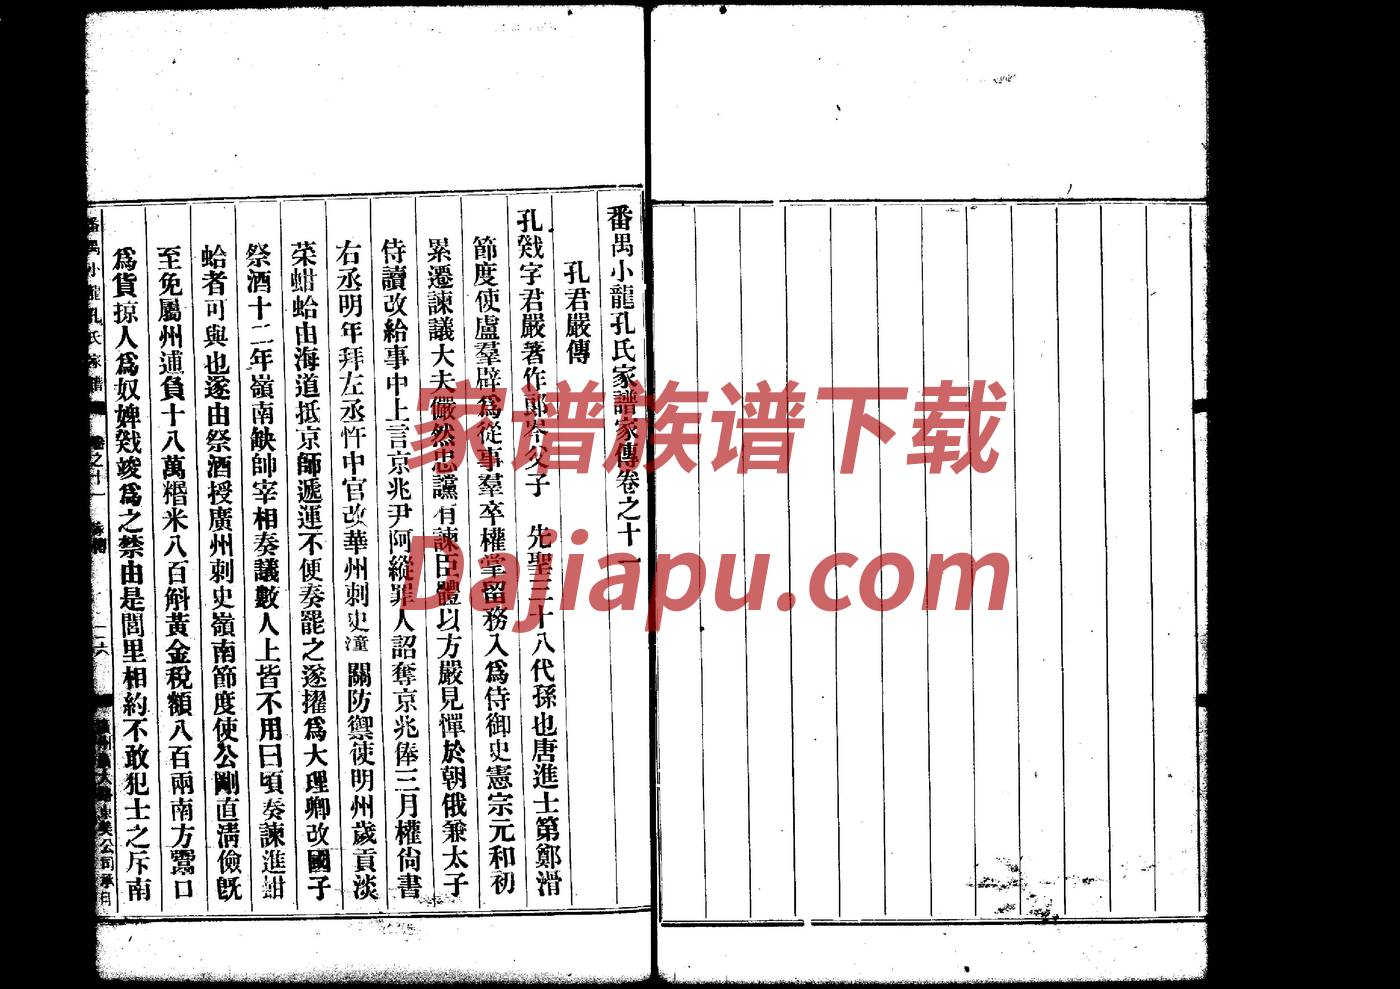 番禺小龍孔氏家譜家傳卷之十一
孔君嚴傳
孔戣字君嚴著作郎岑父子 先聖三十八代孫也唐進士第鄭滑
節度使盧羣辟爲從事羣卒權掌留務入爲侍御史憲宗元和初
累遷諫議大夫儼然忠讜有諫臣體以方嚴見憚於朝俄兼太子
侍讀改給事中上言京兆尹阿縱罪人詔奪京兆俸三月權尙書
右丞明年拜左丞忤中官改華州刺史潼關防禦使明州歲貢淡
菜蚶蛤由海道抵京師遞運不便奏罷之遂擢爲大理卿改國子
祭酒十二年嶺南缺帥宰相奏議數人上皆不用曰頃奏諫進蚶
蛤者可與也遂由祭酒授廣州刺史嶺南節度使公剛直淸儉旣
至免屬州逋負十八萬緡米八百斛黃金稅額八百兩南方鬻口
爲貨掠人爲奴婢戣竣爲之禁由是閭里相約不敢犯士之斥南
番禺小龍孔氏家譜 卷之十一 家傳 一六
家谱族谱下载
Dajiapu.com